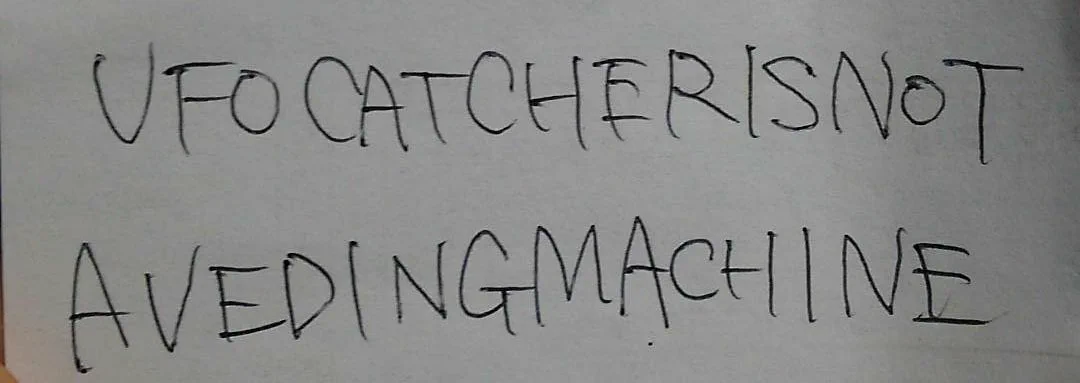 UFOCATCHERISNOT
AVEDINGMACHINE